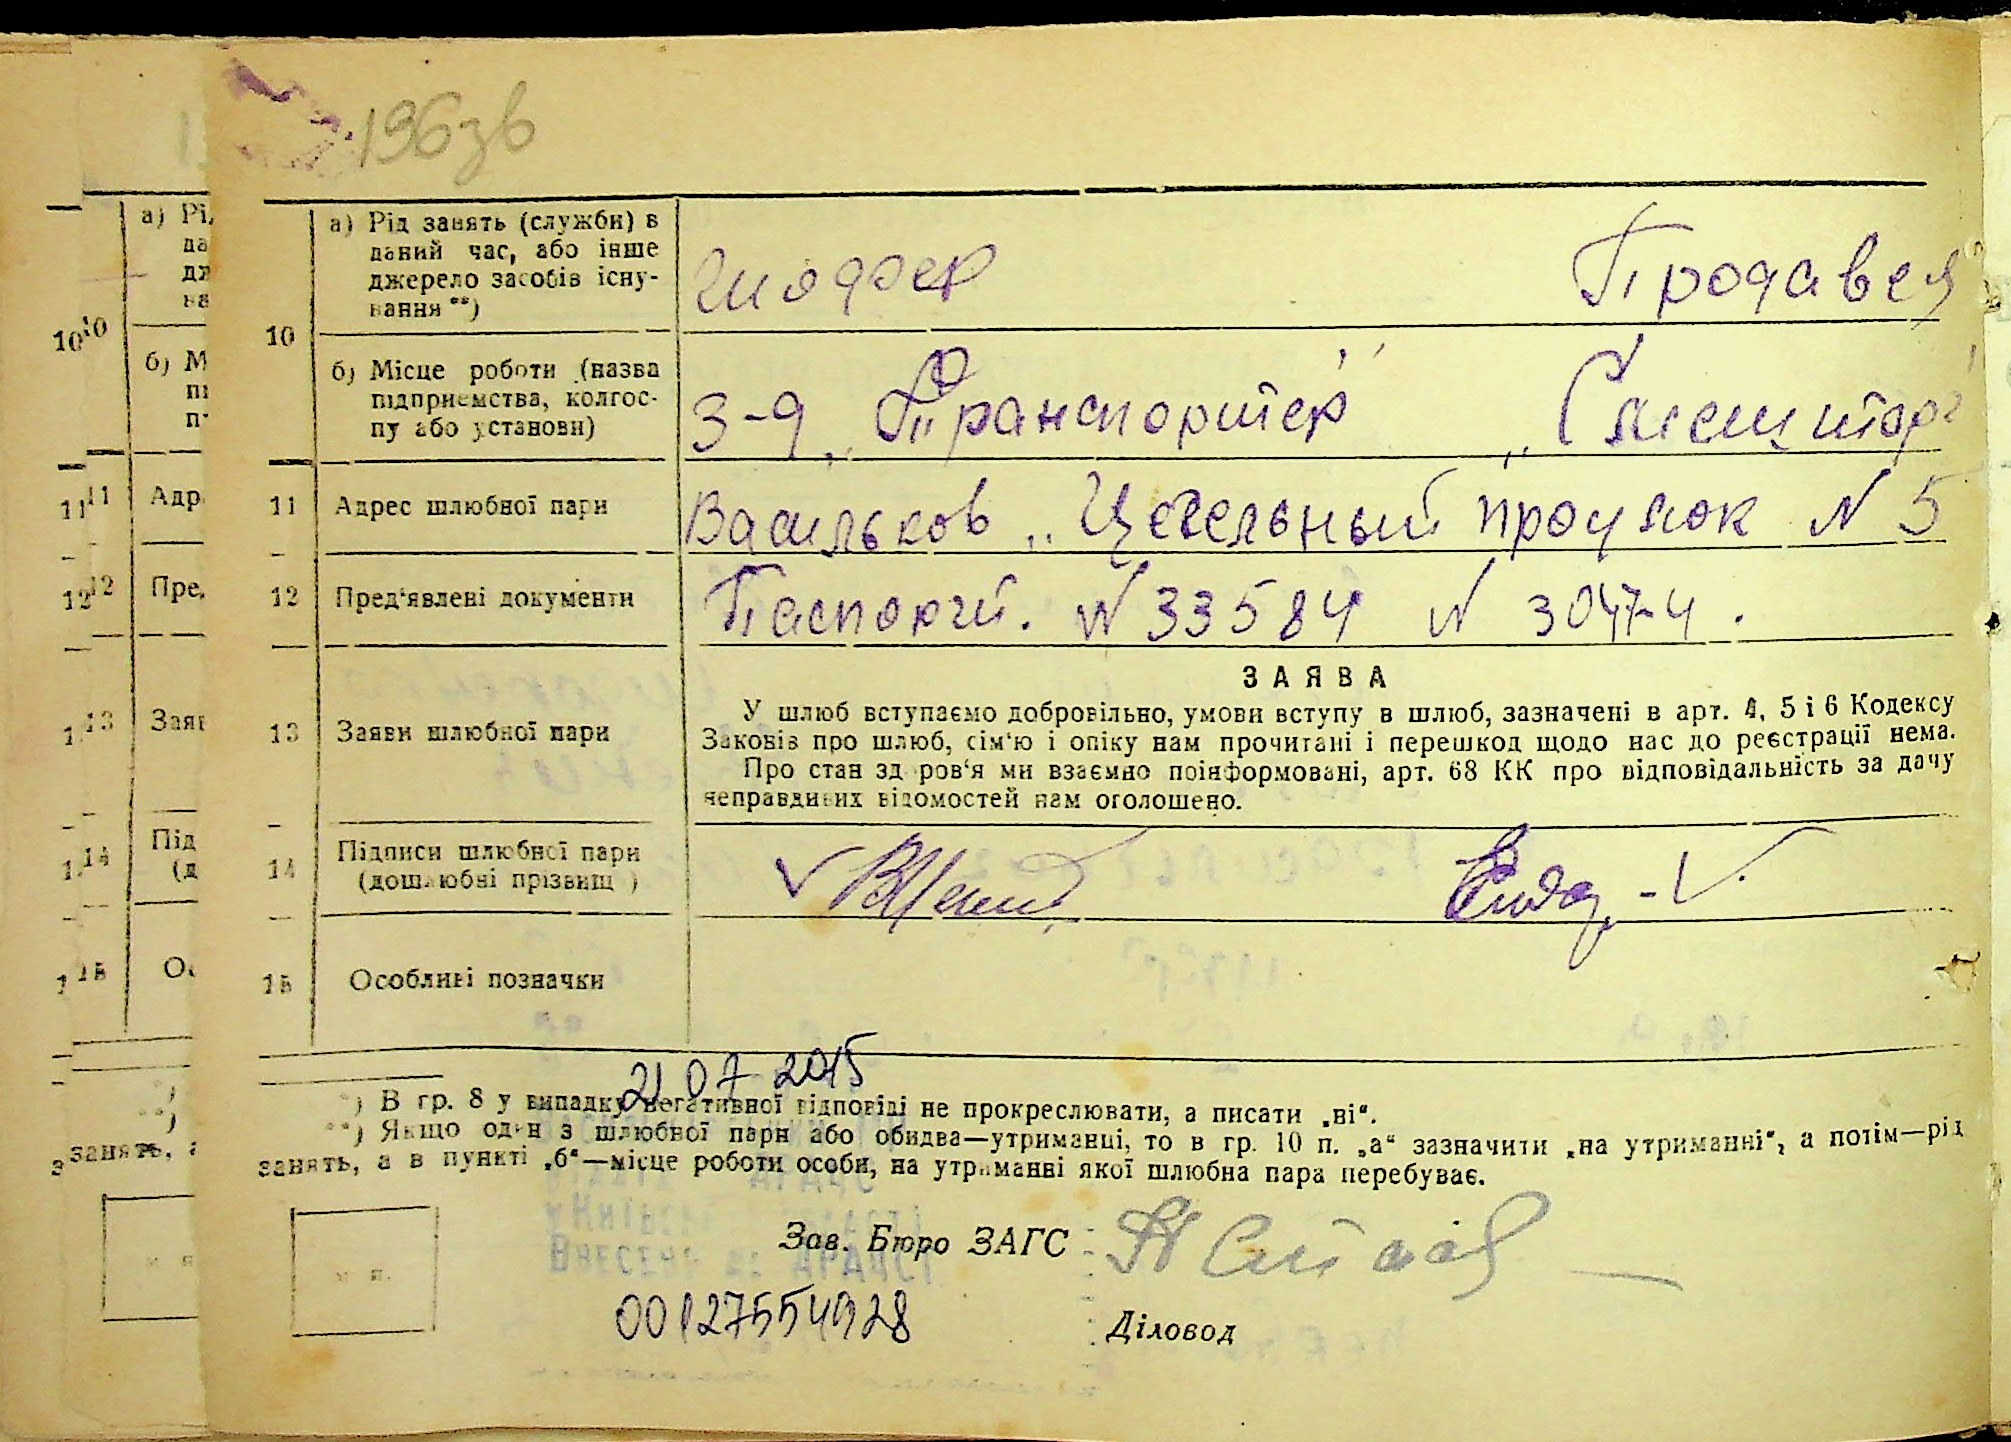 196зв
10
а) Рід занять (служби) в
даний час, або інше
джерело засобів існу-
вання **)
Шофер Продавец
б) Місце роботи (назва
підприємства, колгос-
пу або установи)
З-д „Транспортер"
11 Адрес шлюбної пари
Васильков
проулок N 5
12 Пред'явлені документи
N 33584 N 30474.
13 Заяви шлюбної пари
ЗАЯВА
У шлюб вступаємо добровільно, умови вступу в шлюб, зазначені в арт. 4, 5 і 6 Кодексу
Законів про шлюб, сім'ю і опіку нам прочитані і перешкод щодо нас до реєстрації нема.
Про стан здоров'я ми взаємно поінформовані, арт. 68 КК про відповідальність за дачу
неправдивих відомостей нам оголошено.
14 Підписи шлюбної пари
(дошлюбні прізвищ )
15 Особливі позначки
21 07 2015
*) В гр. 8 у випадку негативної відповіді не прокреслювати, а писати „ні".
**) Якщо один з шлюбної пари або обидва—утриманці, то в гр. 10 п. „а" зазначити „на утриманні", а потім—рід
занять, а в пункті „б"—місце роботи особи, на утриманні якої шлюбна пара перебуває.
м п.
Зав. Бюро ЗАГС
Внесено до ДРАЦСГ
00127554928
Діловод